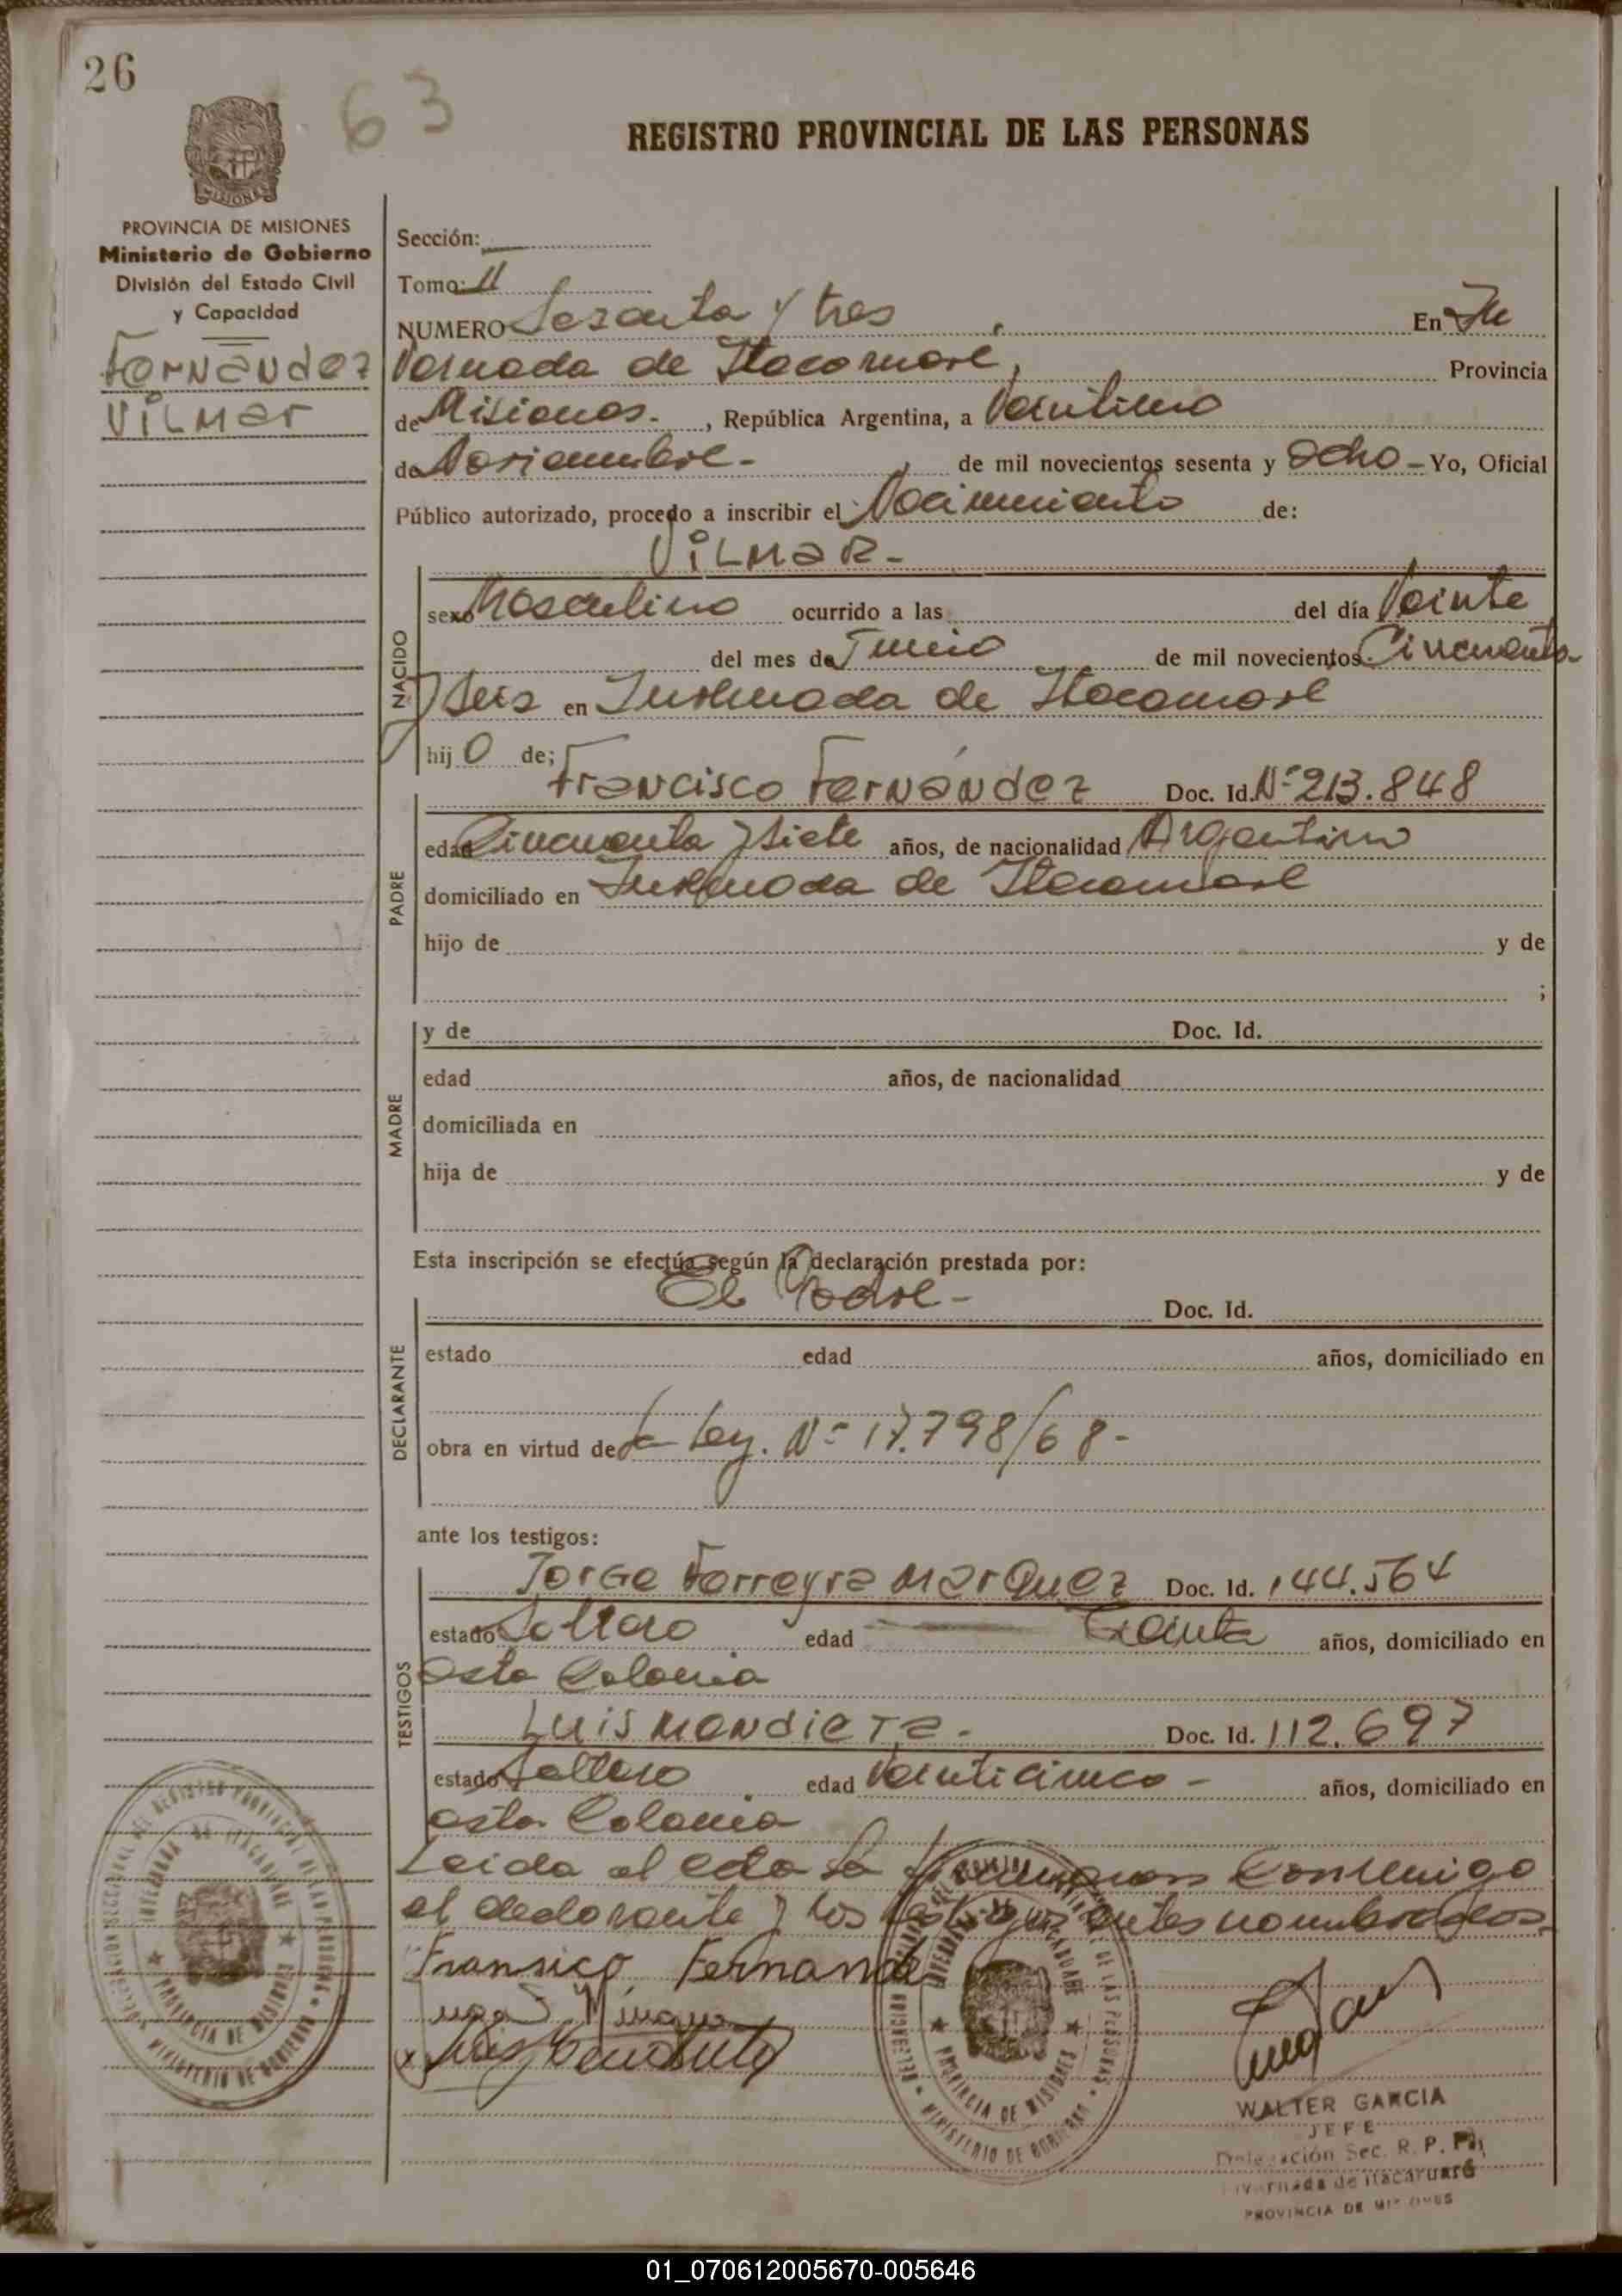 26
63
REGISTRO PROVINCIAL DE LAS PERSONAS
MISIONES
PROVINCIA DE MISIONES
Ministerio de Gobierno
División del Estado Civil
y Capacidad
Fernández
Vilmar
Sección:
Tomo: II
NUMERO Sesenta y tres, En In
vernada de Itacaruaré, Provincia
de Misiones., República Argentina, a Veintiuno
de Noviembre - de mil novecientos sesenta y Ocho - Yo, Oficial
Público autorizado, procedo a inscribir el Nacimiento de:
VILMAR -
NACIDO
sexo Masculino ocurrido a las del día Veinte
del mes de Junio de mil novecientos Cincuenta
y seis en Invernada de Itacaruaré
hijo de;
PADRE
Francisco Fernández Doc. Id. Nº 213.848
edad Cincuenta y siete años, de nacionalidad Argentino
domiciliado en Invernada de Itacaruaré
hijo de y de
;
MADRE
y de Doc. Id.
edad años, de nacionalidad
domiciliada en
hija de y de
Esta inscripción se efectúa según la declaración prestada por:
DECLARANTE
El Padre - Doc. Id.
estado edad años, domiciliado en
obra en virtud de la Ley. Nº 17.798/68 -
ante los testigos:
TESTIGOS
Jorge Ferreyra Marquez Doc. Id. 144.564
estado Soltero edad Treinta años, domiciliado en
esta Colonia
Luis Mendieta - Doc. Id. 112.697
estado Soltero edad Veinticinco - años, domiciliado en
esta Colonia
Leida el acta la firman conmigo
el declarante y los testigos antes nombrados.
Fransico Fernande
WALTER GARCIA
JEFE
Delegación Sec. R. P. P.
Invernada de Itacaruaré
PROVINCIA DE MISIONES
DELEGACIÓN SECCIONAL DEL REGISTRO PROVINCIAL DE LAS PERSONAS
INVERNADA DE ITACARUARE
PROVINCIA DE MISIONES
MINISTERIO DE GOBIERNO
01_070612005670-005646